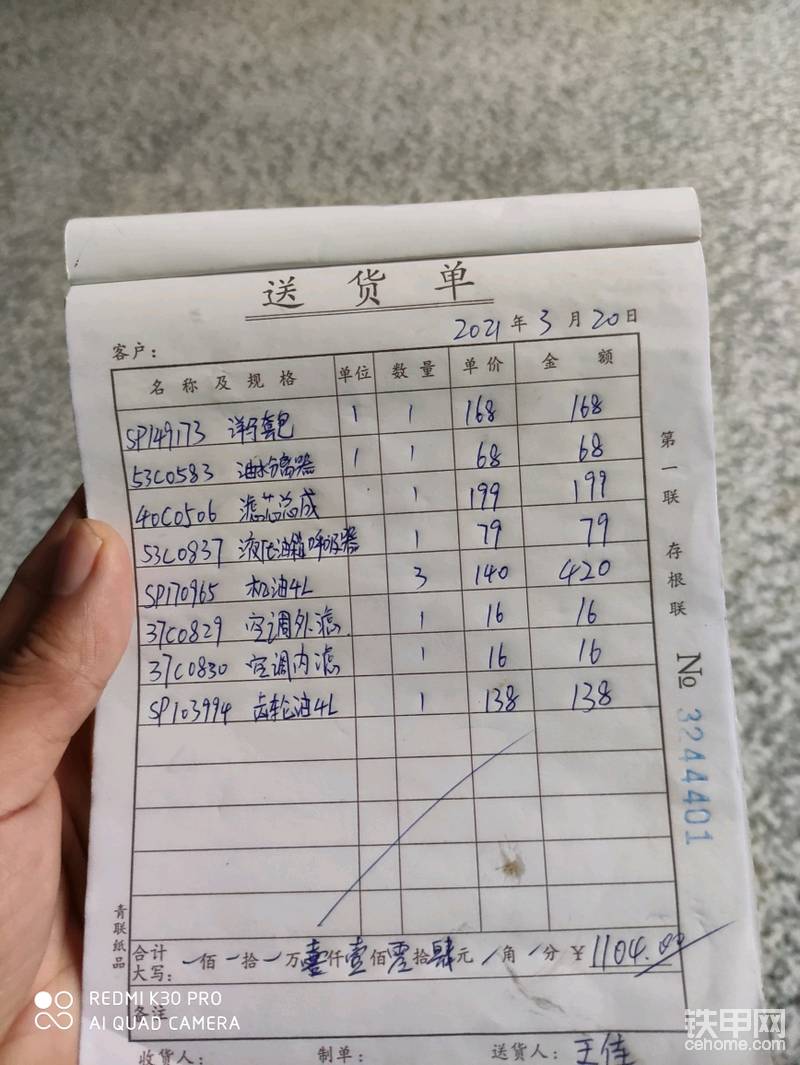 送货单
2021年3月20日
客户：
名称及规格 单位 数量 单价 金额
SP149173 1 1 168 168
53C0583 油水分离器 1 1 68 68
40C0506 滤芯总成 1 199 199
53C0837 液压油箱呼吸器 1 79 79
SP170965 机油4L 3 140 420
37C0829 空调外滤 1 16 16
37C0830 空调内滤 1 16 16
SP103994 齿轮油4L 1 138 138
合计大写： 佰 拾 万壹仟壹佰零拾肆元 角 分 ￥1104.00
备注
收货人： 制单： 送货人：王佳
第一联 存根联
№ 3244401
青联纸品
REDMI K30 PRO
AI QUAD CAMERA
铁甲网
cehome.com